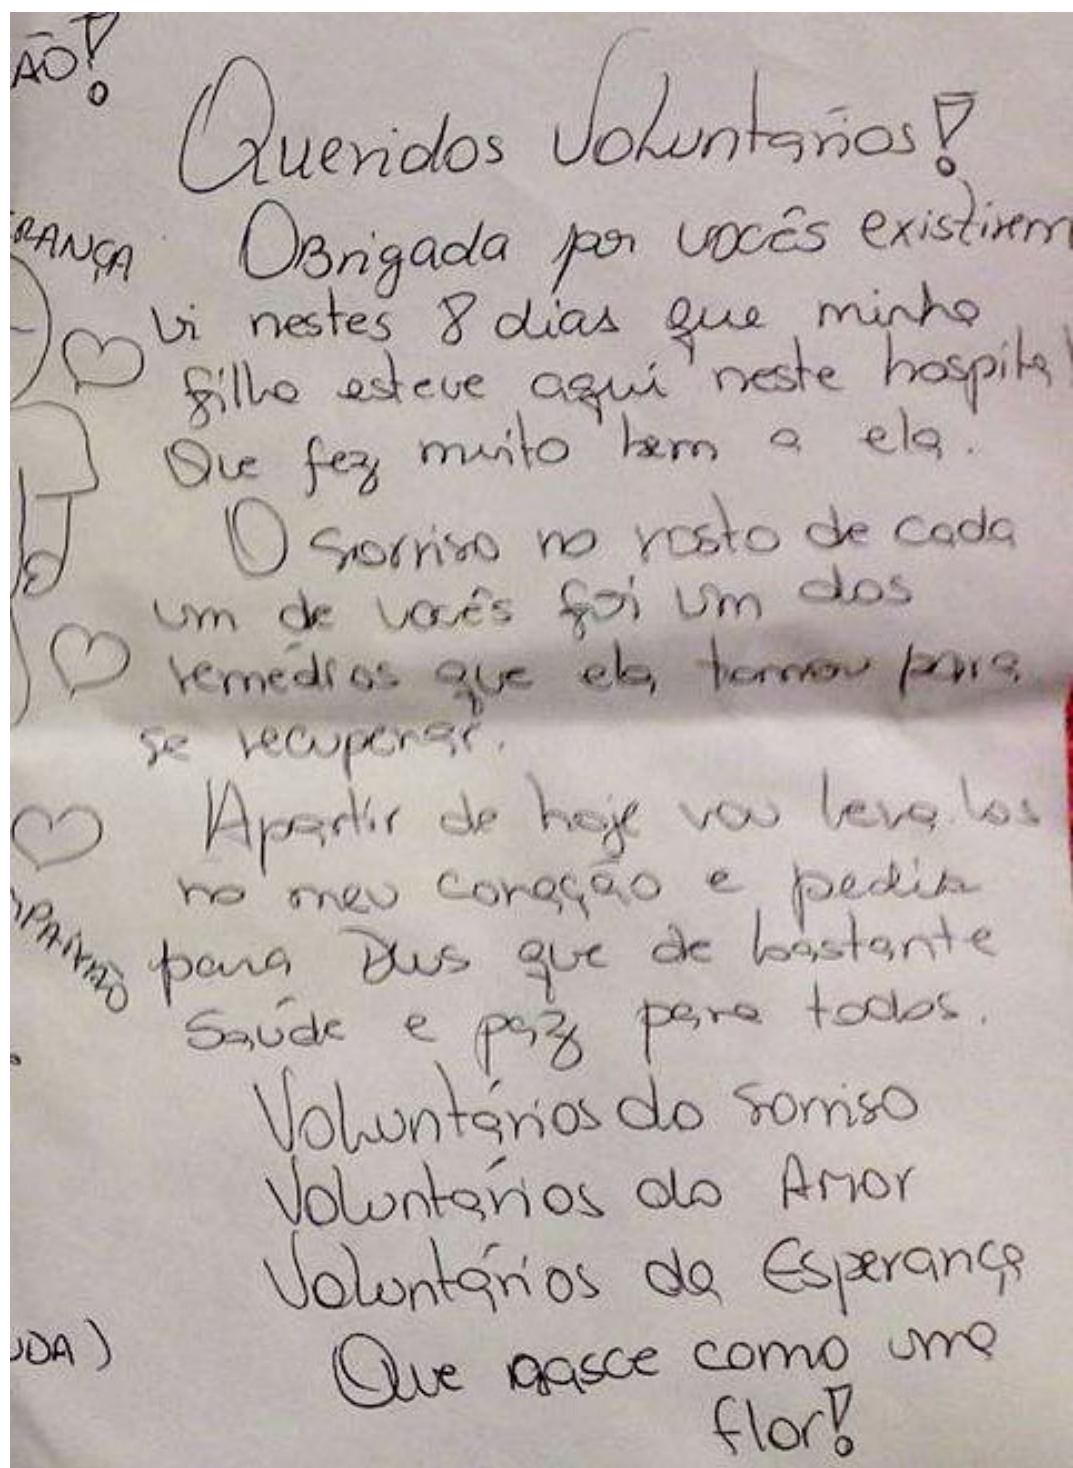 ÃO!
Queridos Voluntários!
RANÇA
Obrigada por vocês existirem
Vi nestes 8 dias que minha
filha esteve aqui neste hospital
Que fez muito bem a ela.
O sorriso no rosto de cada
um de vocês foi um dos
remédios que ela tomou para
se recuperar.
Apartir de hoje vou leva-los
no meu coração e pedir
para Deus que de bastante
Saúde e paz para todos.
Voluntários do sorriso
Voluntários do Amor
Voluntários da Esperança
UDA)
Que nasce como uma
flor!